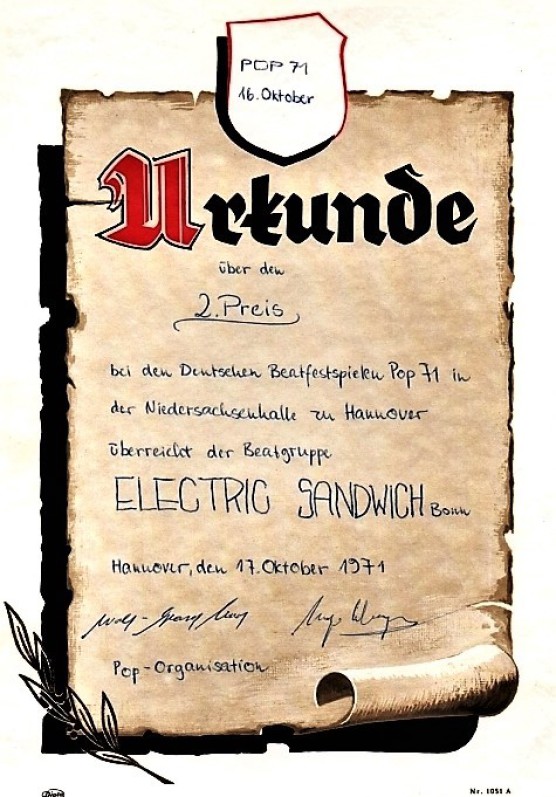 POP 71
16. Oktober
Urkunde
über den
2. Preis
bei den Deutschen Beatfestspielen Pop 71 in
der Niedersachsenhalle zu Hannover
überreicht der Beatgruppe
ELECTRIC SANDWICH Bonn
Hannover, den 17. Oktober 1971
Pop-Organisation
Nr. 1051 A